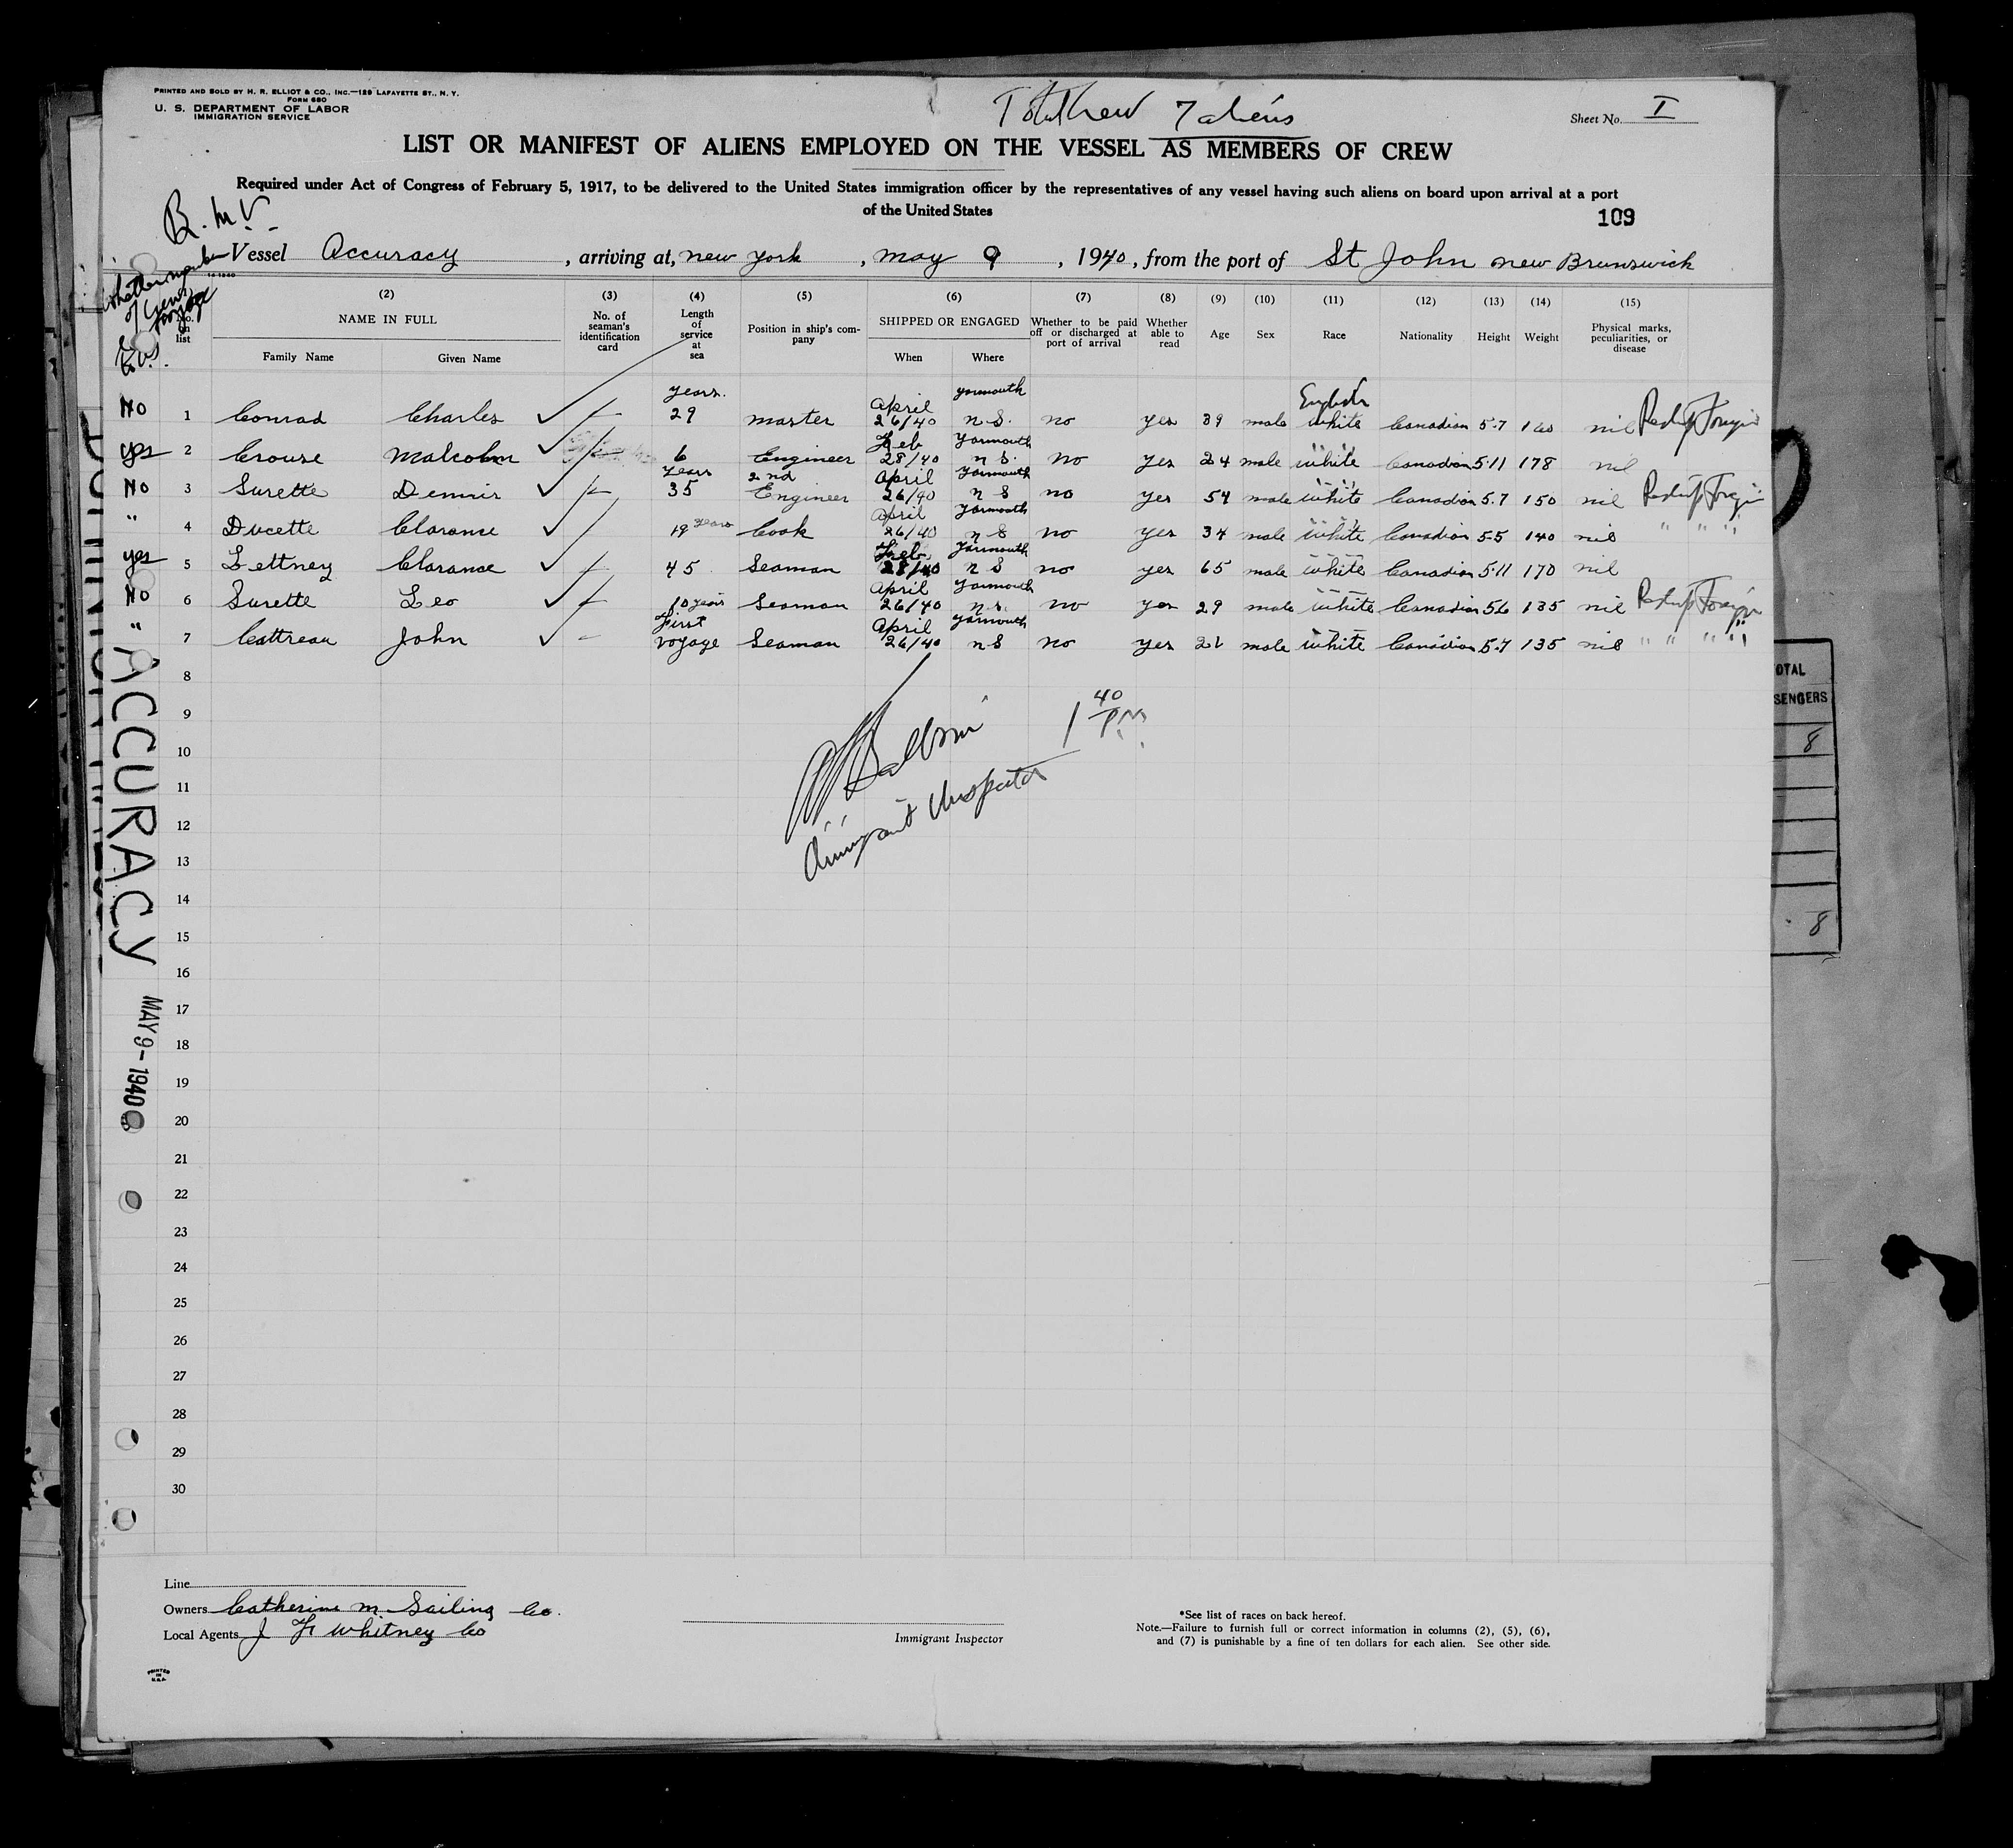 PRINTED AND SOLD BY H. R. ELLIOT & CO., INC.—129 LAFAYETTE ST., N. Y.
FORM 680
U. S. DEPARTMENT OF LABOR
IMMIGRATION SERVICE
Total Crew 7 aliens
Sheet No. I
LIST OR MANIFEST OF ALIENS EMPLOYED ON THE VESSEL AS MEMBERS OF CREW
Required under Act of Congress of February 5, 1917, to be delivered to the United States immigration officer by the representatives of any vessel having such aliens on board upon arrival at a port
of the United States
109
Br. M.V.
Vessel Accuracy, arriving at, new york, may 9, 1940, from the port of St John new Brunswick
Whether member of Crew
voyage
to U.S.
No. in list
(2) NAME IN FULL Family Name Given Name
(3) No. of seaman's identification card
(4) Length of service at sea
(5) Position in ship's company
(6) SHIPPED OR ENGAGED When Where
(7) Whether to be paid off or discharged at port of arrival
(8) Whether able to read
(9) Age
(10) Sex
(11) Race
(12) Nationality
(13) Height
(14) Weight
(15) Physical marks, peculiarities, or disease
No 1 Conrad Charles years. 29 master April 26/40 yarmouth n.S. no yes 39 male English white Canadian 5.7 160 nil
yes 2 Crouse Malcolm 6 years Engineer Feb 28/40 Yarmouth n S. no yes 24 male " white Canadian 5.11 178 nil
No 3 Surette Dennis 35 2nd Engineer April 26/40 Yarmouth n S no yes 54 male " white Canadian 5.7 150 nil
" 4 Ducette Clarance 19 years Cook April 26/40 Yarmouth n S no yes 34 male " white Canadian 5.5 140 nil " " "
yes 5 Lettney Clarance 45 Seaman Feb 28/40 Yarmouth n S no yes 65 male " white Canadian 5.11 170 nil
No 6 Surette Leo 10 years Seaman April 26/40 Yarmouth n.s. no yes 29 male " white Canadian 5.6 135 nil
" 7 Cottreau John First voyage Seaman April 26/40 Yarmouth n S no yes male " white Canadian 5.7 135 nil " " " "
8
9
10
11
12
13
14
15
16
17
18
19
20
21
22
23
24
25
26
27
28
29
30
1 40 PM
Immigrant Inspector
ACCURACY
MAY 9 - 1940
TOTAL
SENGERS
8
8
Line
Owners Catherine M Sailing Co.
Local Agents J F Whitney Co
Immigrant Inspector
*See list of races on back hereof.
Note.—Failure to furnish full or correct information in columns (2), (5), (6),
and (7) is punishable by a fine of ten dollars for each alien. See other side.
PRINTED IN U.S.A.